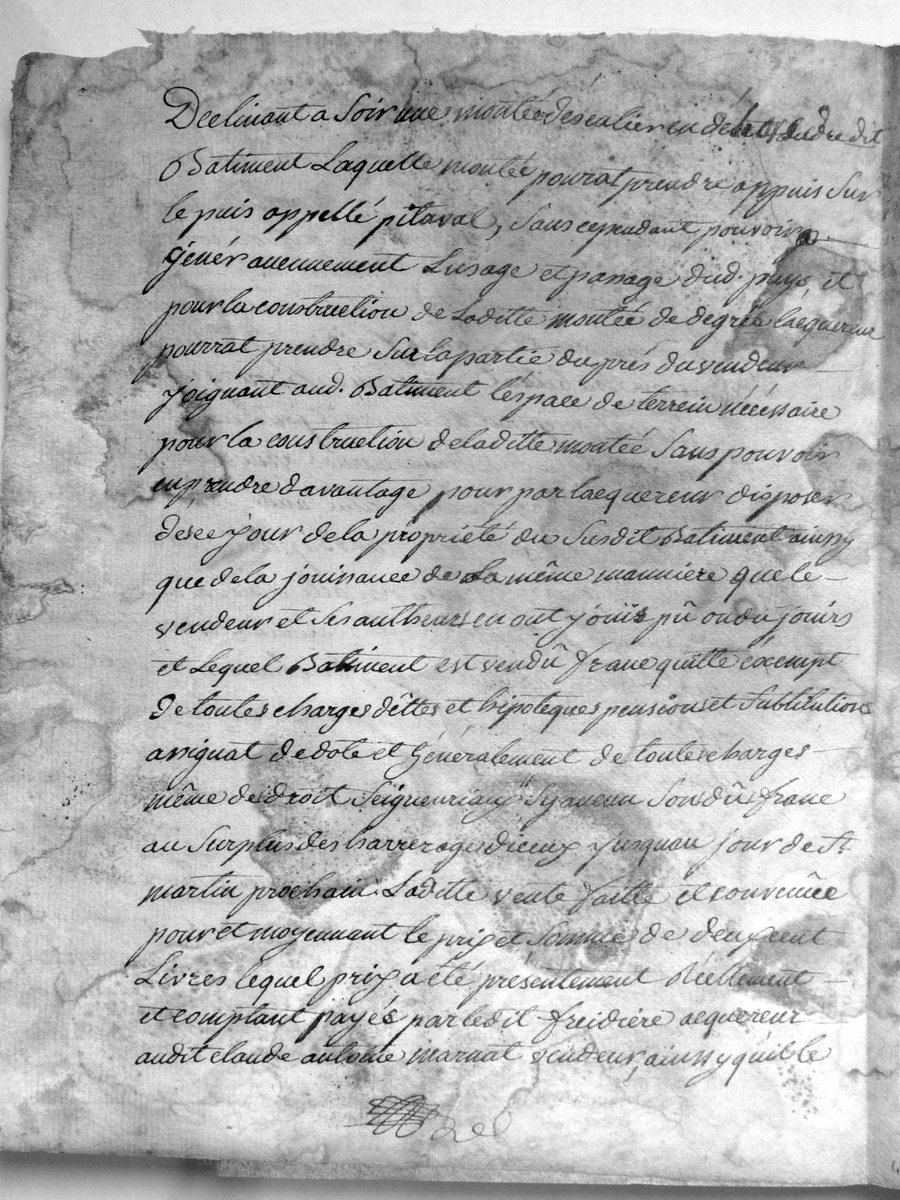 Declinant a Soir une montée déscalier en déhors dudredit
Batiment Laquelle montée pourat prendre appuis Sur
le puis appellé pitaval, Sans cependant pouvoir
Génér aucunnement Lusage et passage dud. puys, et
pour la construction de Laditte montée de degrés lacquereur
pourrat prendre Sur la partie du prés du vendeur
joignant aud. Batiment léspace de terrein nécéssaire
pour la construction de laditte montée Sans pouvoir
en prendre davantage pour par lacquereur disposer
de ce jour de la propriété du Susdit Batiment ainsy
que de la jouissance de La même manniere que le
vendeur et Ses autheurs en ont joüis pû ou du joüirs
et Lequel Batiment est vendû franc quitte exempt
de toutes charges déttes et hipoteques pension et Substitutions
assignat de dote et Généralement de toutes charges
même de droit Seigneuriaux Sy aucun Son dûs franc
au Surplus des harrerages diceux jusquau jour de St
martin prochain Laditte vente faitte et convenüe
pour et moyennant le prix et Somme de deux cent
Livres lequel prix a été présentement Réellement
et comptant payés par ledit freidiére acquereur
audit claude antoine marnat vendeur, ainsy quil le